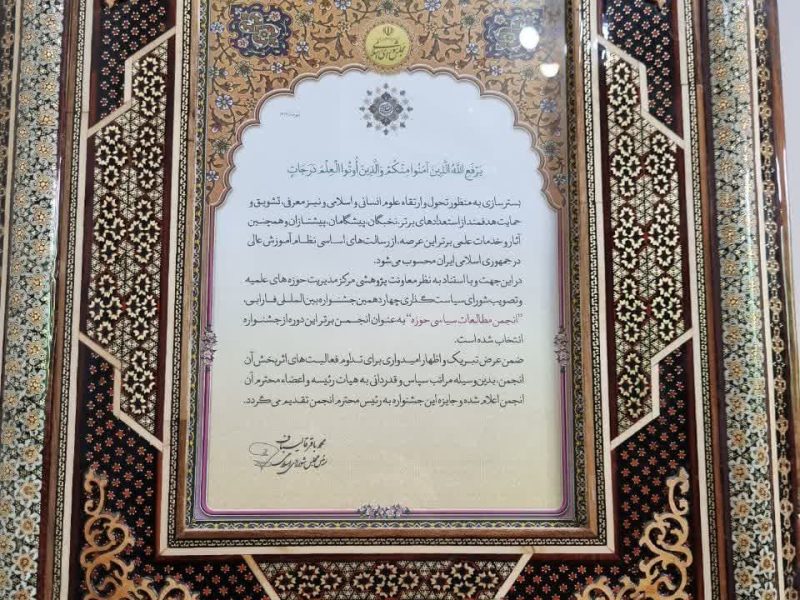 مجلس شورای اسلامی
یَرْفَعِ اللَّهُ الَّذِینَ آمَنُوا مِنْكُمْ وَالَّذِینَ أُوتُوا الْعِلْمَ دَرَجَاتٍ
بسترسازی به منظور تحول و ارتقاء علوم انسانی و اسلامی و نیز معرفی، تشویق و
حمایت هدفمند از استعدادهای برتر، نخبگان، پیشگامان، پیشتازان و همچنین
آثار و خدمات علمی برتر این عرصه، از رسالت‌های اساسی نظام آموزش عالی
در جمهوری اسلامی ایران محسوب می‌شود.
در این جهت و با استناد به نظر معاونت پژوهشی مرکز مدیریت حوزه‌های علمیه
و تصویب شورای سیاست‌گذاری چهاردهمین جشنواره بین‌المللی فارابی،
"انجمن مطالعات سیاسی حوزه" به عنوان انجمن برتر این دوره از جشنواره
انتخاب شده است.
ضمن عرض تبریک و اظهار امیدواری برای تداوم فعالیت‌های اثربخش آن
انجمن، بدین وسیله مراتب سپاس و قدردانی به هیات رئیسه و اعضاء محترم آن
انجمن اعلام شده و جایزه این جشنواره به رئیس محترم انجمن تقدیم می‌گردد.
محمد باقر قالیباف
رئیس مجلس شورای اسلامی